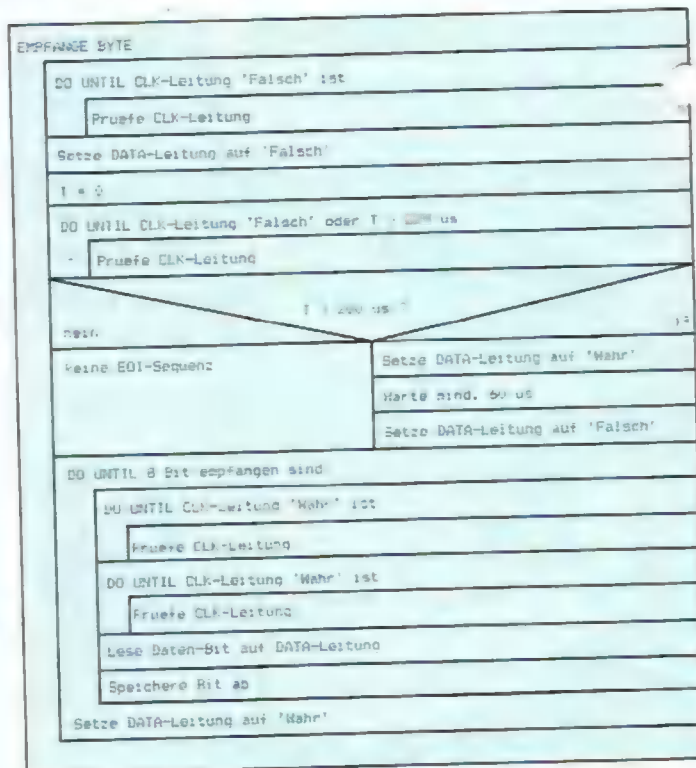 EMPFANGE BYTE
DO UNTIL CLK-Leitung 'Falsch' ist
Pruefe CLK-Leitung
Setze DATA-Leitung auf 'Falsch'
T = 0
DO UNTIL CLK-Leitung 'Falsch' oder T us
Pruefe CLK-Leitung
T > 200 us ?
nein
ja
keine EOI-Sequenz
Setze DATA-Leitung auf 'Wahr'
Warte mind. 60 us
Setze DATA-Leitung auf 'Falsch'
DO UNTIL 8 Bit empfangen sind
DO UNTIL CLK-Leitung 'Wahr' ist
Pruefe CLK-Leitung
DO UNTIL CLK-Leitung 'Wahr' ist
Pruefe CLK-Leitung
Lese Daten-Bit auf DATA-Leitung
Speichere Bit ab
Setze DATA-Leitung auf 'Wahr'